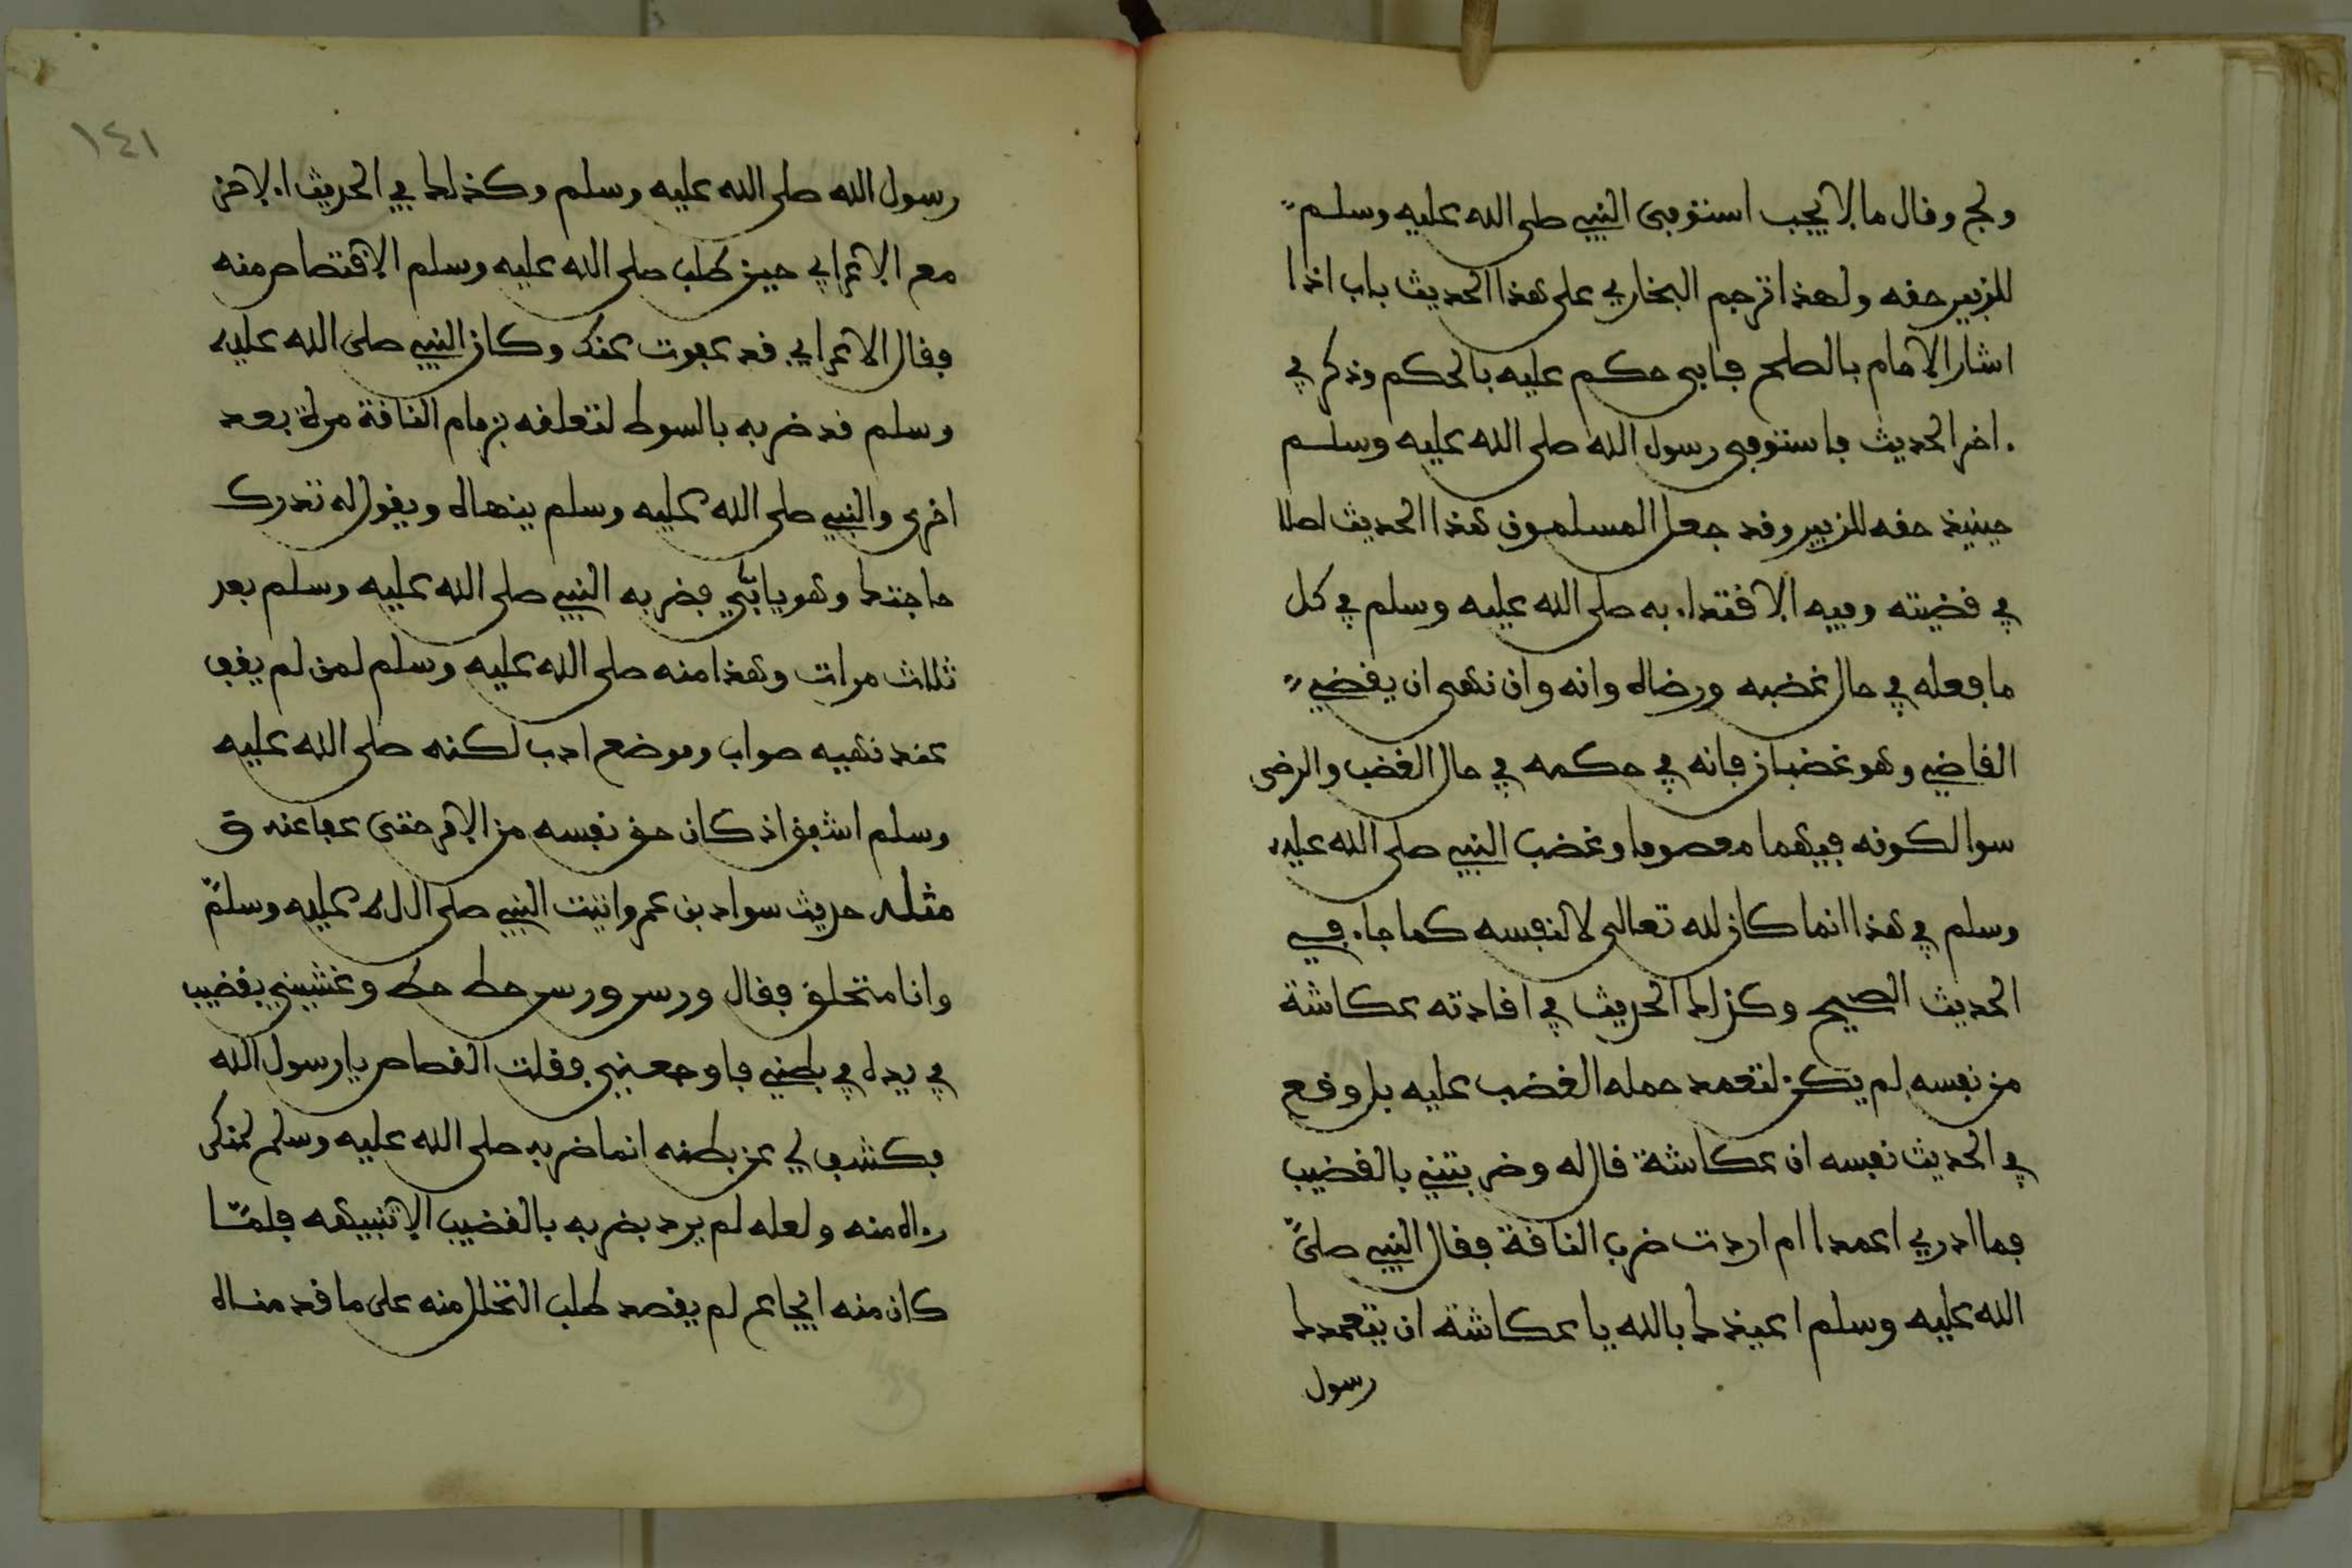 ولج وقال ما لا يجب استوفى النبي صلى الله عليه وسلم
للزبير حقه ولهذا ترجم البخاري على هذا الحديث باب اذا
اشار الامام بالصلح فابى حكم عليه بالحكم وذكر في
اخر الحديث فاستوفى رسول الله صلى الله عليه وسلم
حينيذ حقه للزبير وقد جعل المسلمون هذا الحديث اصلا
في قضيته وفيه الاقتداء به صلى الله عليه وسلم في كل
ما فعله في حال غضبه ورضاه وانه وان نهى ان يقضي
القاضي وهو غضبان فانه في حكمه في حال الغضب والرضى
سوا لكونه فيهما معصوما وغضب النبي صلى الله عليه
وسلم في هذا انما كان لله تعالى لا لنفسه كما جاء في
الحديث الصحيح وكذلك الحديث في اقادته عكاشة
من نفسه لم يكن لتعمد حمله الغضب عليه بل وقع
في الحديث نفسه ان عكاشة قال له وضربتني بالقضيب
فما ادري اعمدا ام اردت ضرب الناقة فقال النبي صلى
الله عليه وسلم اعيذك بالله يا عكاشة ان يتعمدك
رسول
١٤١
رسول الله صلى الله عليه وسلم وكذلك في الحديث الاخر
مع الاعرابي حين طلب صلى الله عليه وسلم الاقتصاص منه
فقال الاعرابي قد عفوت عنك وكان النبي صلى الله عليه
وسلم قد ضربه بالسوط لتعلقه بزمام الناقة مرة بعد
اخرى والنبي صلى الله عليه وسلم ينهاه ويقول له تدرك
حاجتك وهو يابى فضربه النبي صلى الله عليه وسلم بعد
ثلاث مرات وهذا منه صلى الله عليه وسلم لمن لم يقف
عند نهيه صواب وموضع ادب لكنه صلى الله عليه
وسلم اشفق اذ كان حق نفسه من الامر حتى عفا عنه ق
مثله حديث سواد بن عمرو اتيت النبي صلى الله عليه وسلم
وانا متخلق فقال ورس ورس حط حط وغشيني بقضيب
في يده في بطني فاوجعني فقلت القصاص يا رسول الله
فكشف لي عن بطنه انما ضربه صلى الله عليه وسلم لمنكر
راه منه ولعله لم يرد بضربه بالقضيب الا تنبيهه فلما
كان منه ايجاع لم يقصد طلب التحلل منه على ما قدمناه